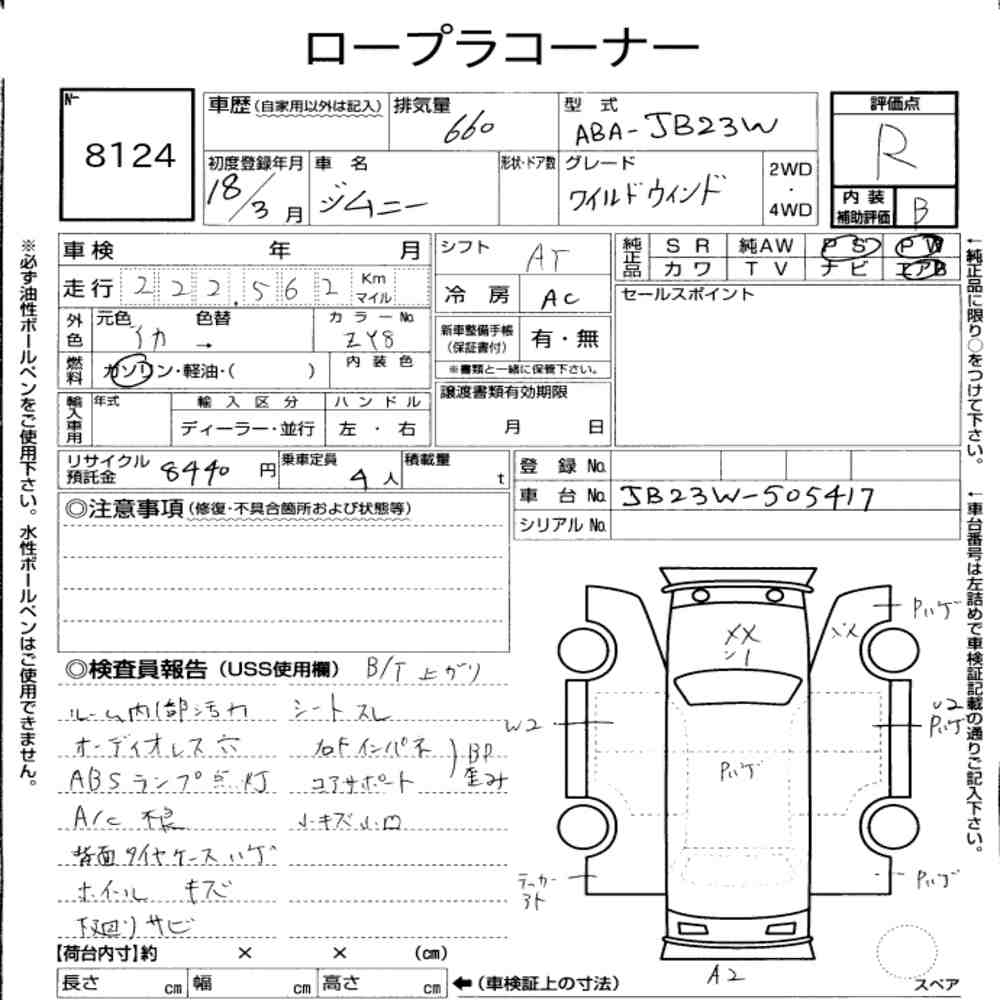 ロープラコーナー
8124
車歴(自家用以外は記入)
排気量 660
型式 ABA-JB23W
評価点 R
初度登録年月 18/3月
車名 ジムニー
形状・ドア数
グレード ワイルドウィンド
2WD・4WD
内装補助評価 B
車検 年 月
シフト AT
純正品 SR 純AW PS PW
カワ TV ナビ エアB
走行 222,562 Km マイル
冷房 AC
セールスポイント
外色 元色 色替 カラーNo.
イカ → ZY8
新車整備手帳(保証書付) 有・無
※書類と一緒に保管下さい。
燃料 ガソリン・軽油・( ) 内装色
譲渡書類有効期限
月 日
輸入車用 年式 輸入区分 ハンドル
ディーラー・並行 左・右
リサイクル預託金 8440円
乗車定員 4人
積載量 t
登録No.
車台No. JB23W-505417
シリアルNo.
◎注意事項(修復・不具合箇所および状態等)
◎検査員報告(USS使用欄) B/T上がり
ルーム内部汚れ シートスレ
オーディオレス穴 右Fインパネ
ABSランプ点灯 コアサポート BP歪み
A/C不良 小キズ小凹
背面タイヤケースハゲ
ホイールキズ
下廻りサビ
【荷台内寸】約 × × (cm)
長さ cm 幅 cm 高さ cm
←(車検証上の寸法)
XX
Pハゲ
W2
U2
Pハゲ
Pハゲ
Pハゲ
A2
スペア
※必ず油性ボールペンをご使用下さい。水性ボールペンはご使用できません。
←純正品に限り○をつけて下さい。
←車台番号は左詰めで車検証記載の通りご記入下さい。